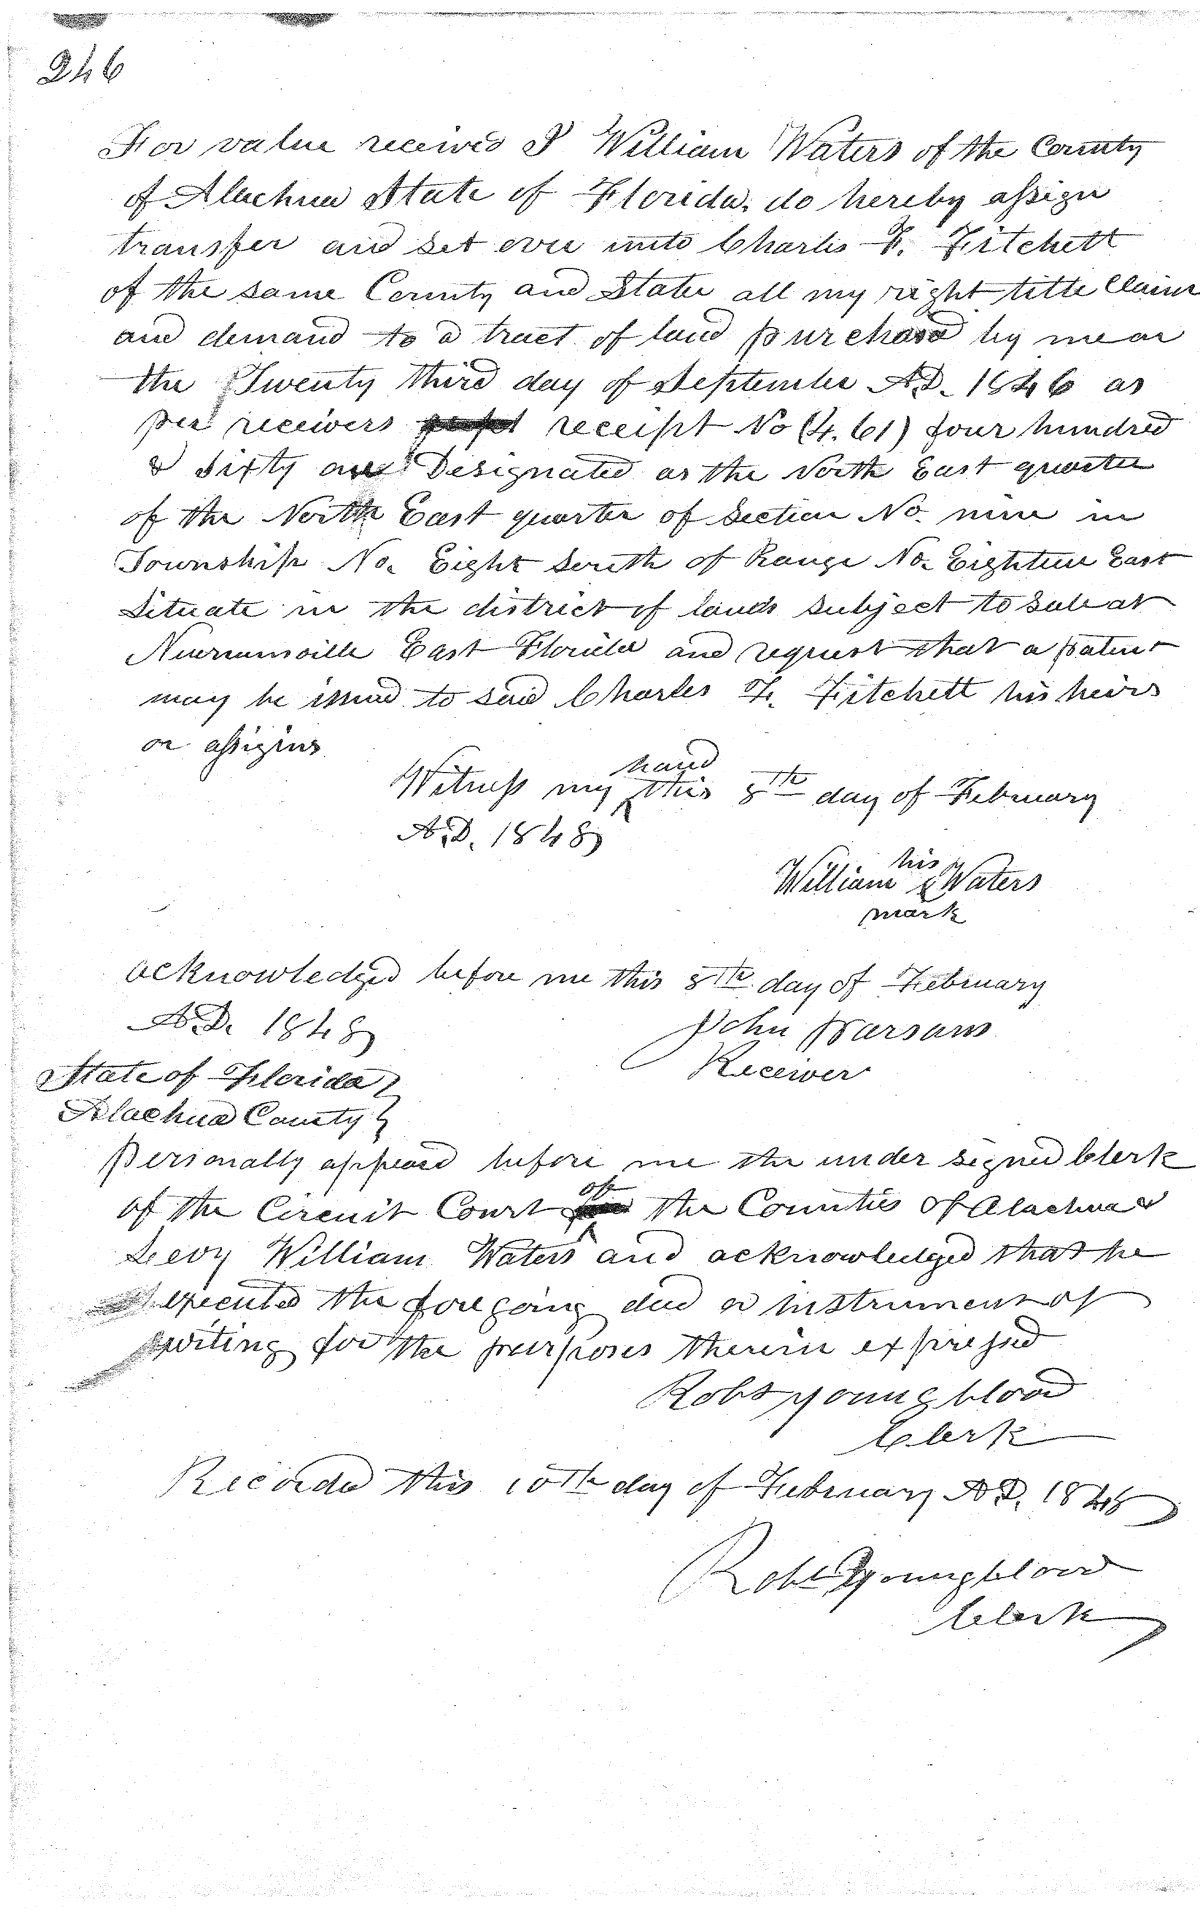 246
For value received I William Waters of the County
of Alachua State of Florida, do hereby assign
transfer and set over unto Charles F. Fitchett
of the same County and State all my right title Claim
and demand to a tract of land purchasd by me on
the Twenty third day of September A.D. 1846 as
per receivers receipt No (4.61) four hundred
& sixty one Designated as the North East quarter
of the North East quarter of Section No. nine in
Township No. Eight South of Range No. Eighteen East
Situate in the district of lands subject to sale at
Newnansville East Florida and request that a patent
may be issued to said Charles F. Fitchett his heirs
or assigins
Witness my hand this 8th day of February
A.D. 1848
William his x mark Waters
acknowledged before me this 8th day of February
A.D. 1848
John Parsons
Receiver
State of Florida }
Alachua County }
Personally appeard before me the under signed Clerk
of the Circuit Court of the Counties of Alachua &
Levy William Waters and acknowledged that he
executed the foregoing deed or instrument of
writing for the purposes therein expressed
Robt Youngblood
Clerk
Recorded this 10th day of February A.D. 1848
Robt Youngblood
Clerk